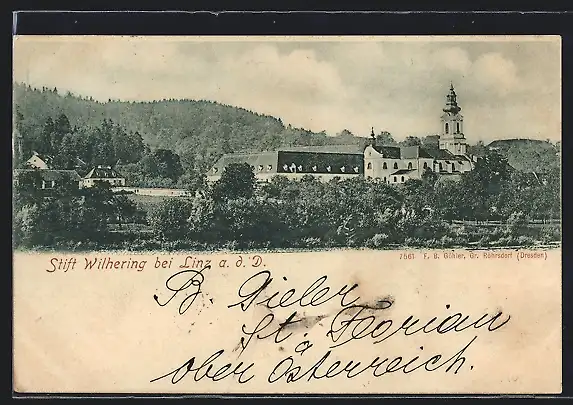 Stift Wilhering bei Linz a. d. D.
7561 F. B. Göhler, Gr. Röhrsdorf (Dresden)
B. Gieler
St. Florian
a
ober Österreich.